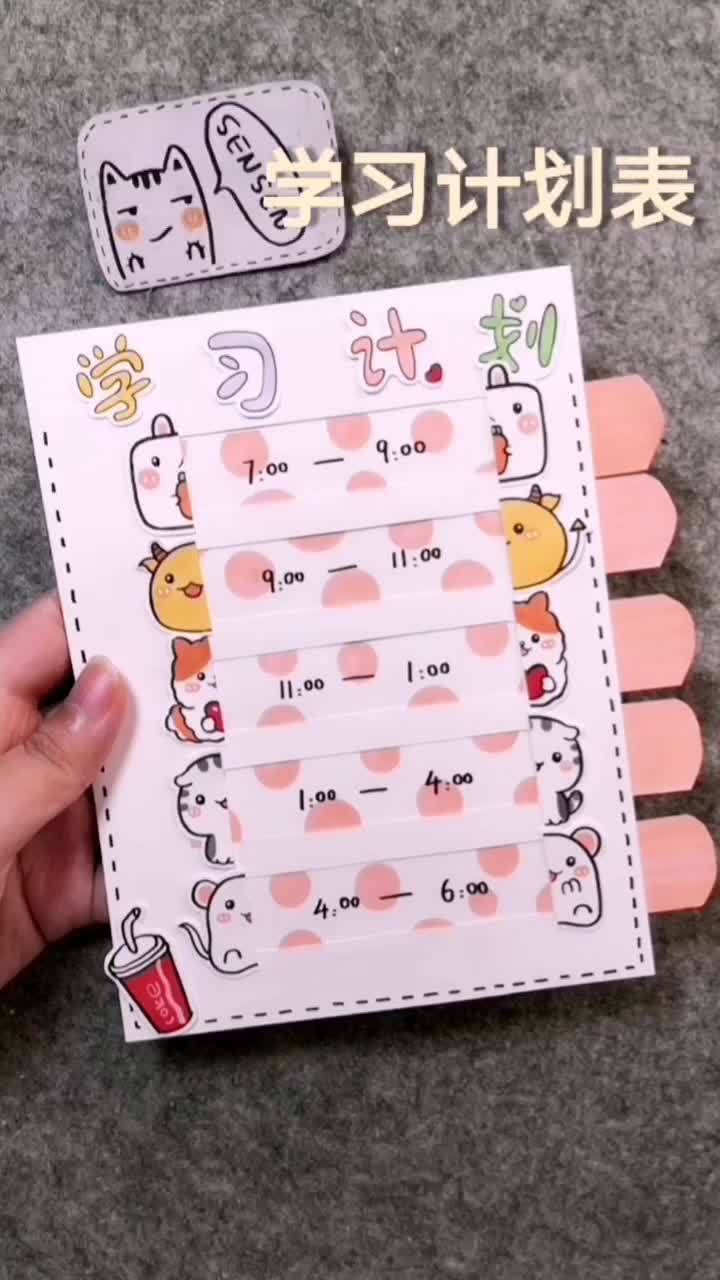 学习计划表
学习计划
7:00 — 9:00
9:00 — 11:00
11:00 — 1:00
1:00 — 4:00
4:00 — 6:00
COKE